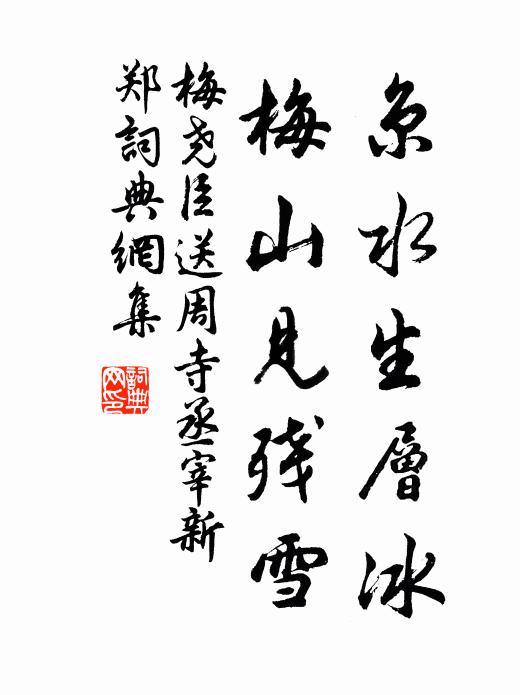 京水生層冰
梅山見残雪
梅尧臣送周寺丞宰新
郑詞典網集
詞典网印